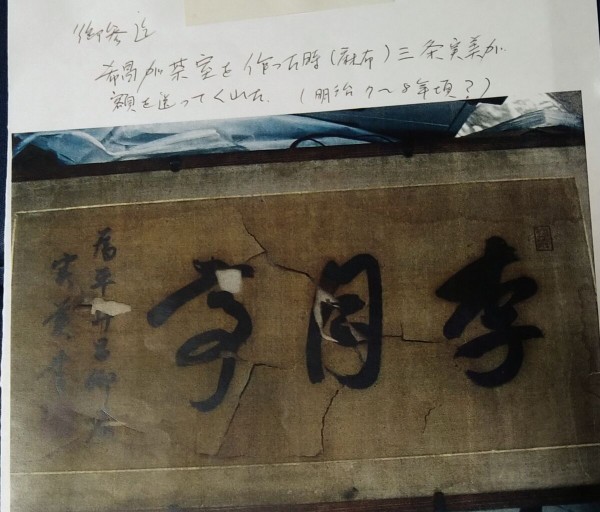 御参迄
希昌が茶室を作った時(麻布)三条実美が
額を送ってくれた. (明治7〜8年頃?)
李月亭
為平井
実美書